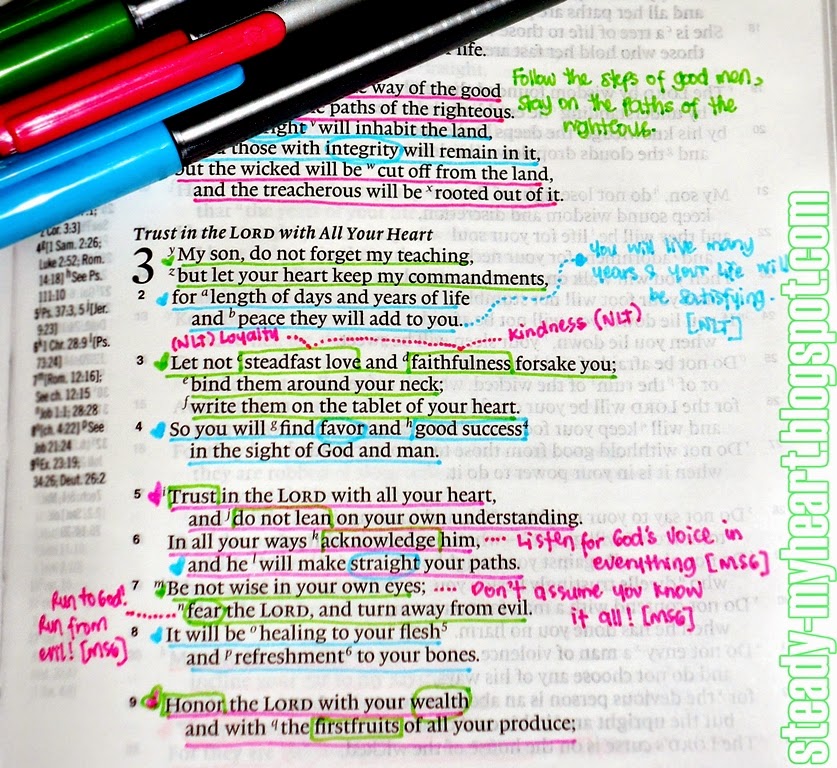 life.
way of the good
paths of the righteous.
will inhabit the land,
those with integrity will remain in it,
but the wicked will be w cut off from the land,
and the treacherous will be x rooted out of it.
Follow the steps of good men,
stay on the paths of the
righteous.
Trust in the LORD with All Your Heart
3 y My son, do not forget my teaching,
z but let your heart keep my commandments,
2 for a length of days and years of life
and b peace they will add to you.
You will live many
years & your life will
be satisfying.
[NLT]
(NLT) Loyalty
Kindness (NLT)
3 Let not c steadfast love and d faithfulness forsake you;
e bind them around your neck;
f write them on the tablet of your heart.
4 So you will g find favor and h good success 4
in the sight of God and man.
5 i Trust in the LORD with all your heart,
and j do not lean on your own understanding.
6 In all your ways k acknowledge him,
and he l will make straight your paths.
Listen for God's voice in
everything [MSG]
7 m Be not wise in your own eyes;
n fear the LORD, and turn away from evil.
Don't assume you know
it all! [MSG]
Run to God!
Run from
evil! [MSG]
8 It will be o healing to your flesh 5
and p refreshment 6 to your bones.
9 Honor the LORD with your wealth
and with q the firstfruits of all your produce;
2 Cor. 3:3]
4 g [1 Sam. 2:26;
Luke 2:52; Rom.
14:18] h See Ps.
111:10
5 i Ps. 37:3, 5 j [Jer.
9:23]
6 k 1 Chr. 28:9 l [Ps.
73:24]
7 m [Rom. 12:16];
See ch. 12:15
n Job 1:1; 28:28
8 o [ch. 4:22] p See
Job 21:24
9 q Ex. 23:19;
34:26; Deut. 26:2
steady-myheart.blogspot.com